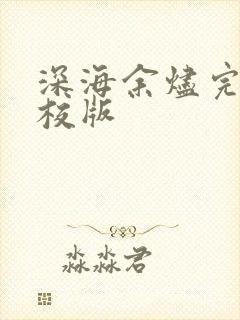 深海余烬完
校版
淼淼君